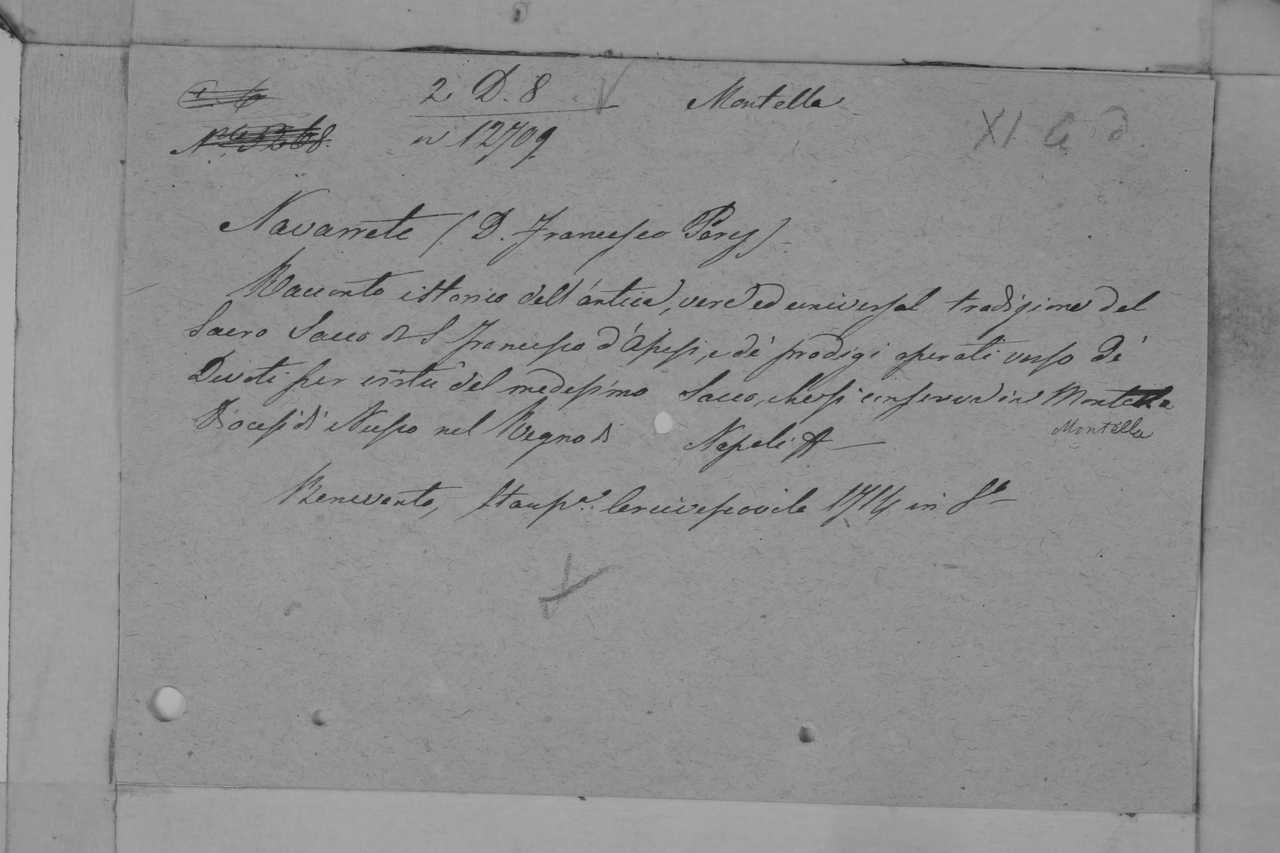 2 D. 8 Montella
n 12709
Navarrete (D. Francesco Pary)
Racconto istorico dell'antica, vera ed universal tradizione del
Sacro Sacco di S Francesco d'Assisi, e de' prodigi operati verso de'
Divoti per virtù del medesimo Sacco, che si conserva in Montella
Montella
Diocesi di Nusco nel Regno di Napoli &
Benevento, Stamp.a Arcivescovile 1714 in 8°